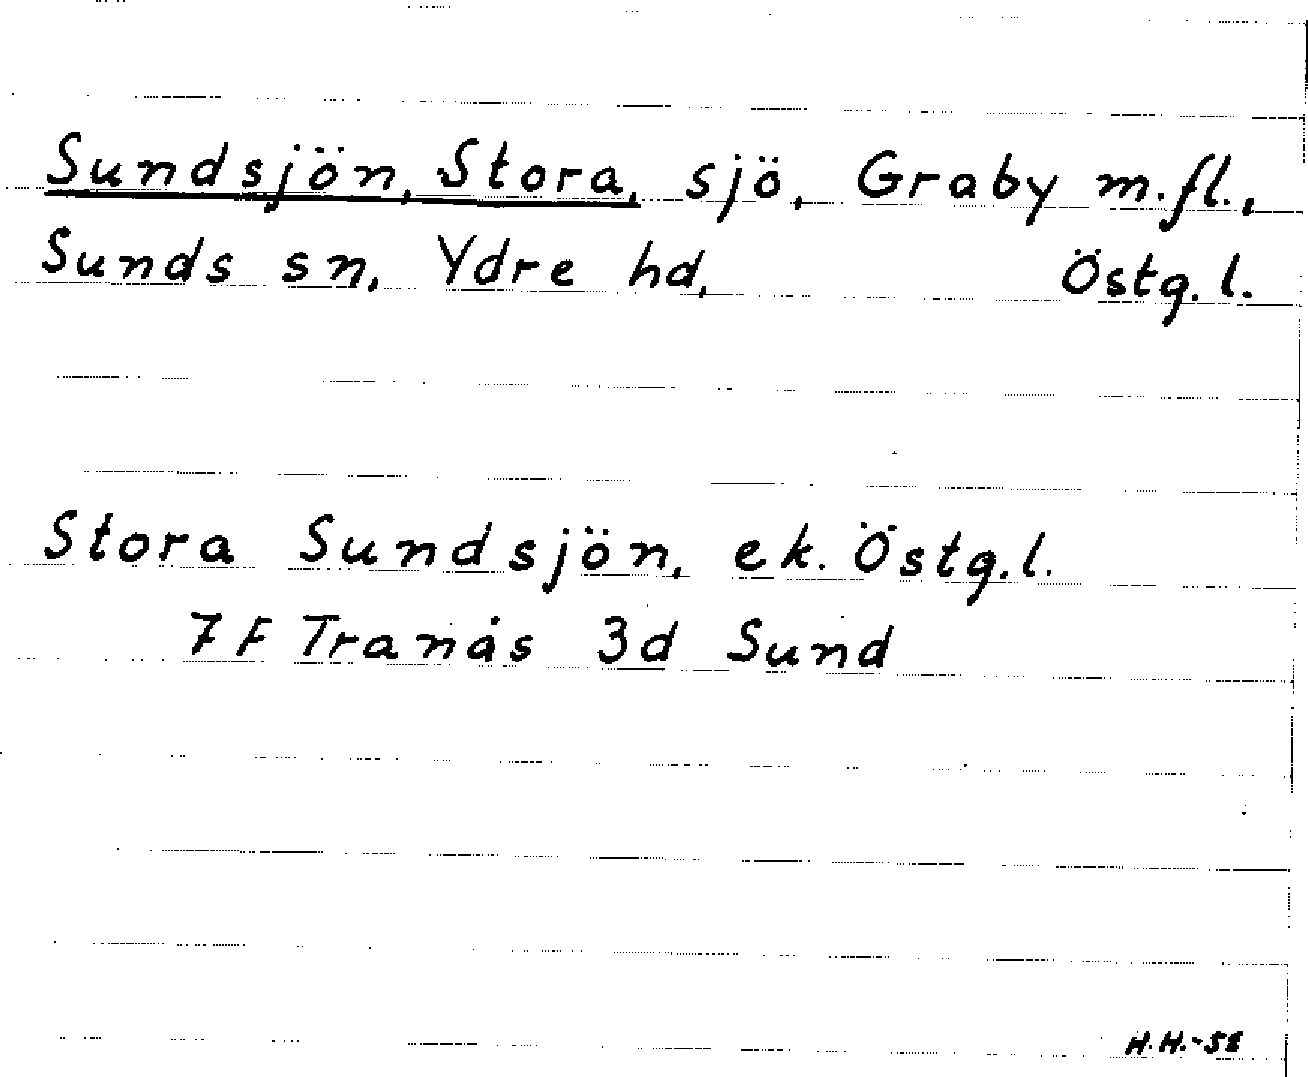 Sundsjön, Stora, sjö, Graby m.fl.,
Sunds sn, Ydre hd, Östg. l.
Stora Sundsjön, ek. Östg. l.
7 F Tranås 3d Sund